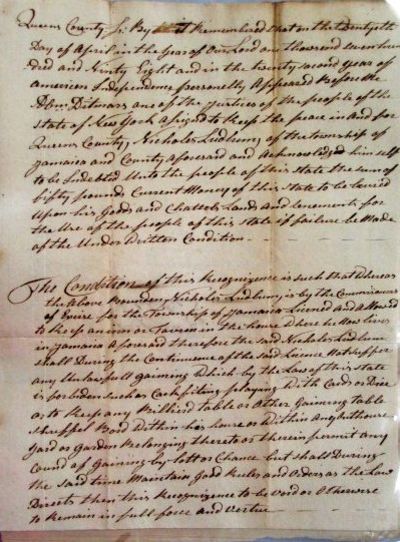 Queens County Ss. By it Remembered that on the twentyth
Day of April in the Year of Our Lord one thousand seven hun
dred and Ninty Eight and in the twenty second year of
american Independence personelly Appeared Before Me
Abm. Ditmars one of the Justices of the people of the
State of New York asigned to Keep the peace in and for
Queens County Nicholes Ludlum of the township of
Jamaica and County aforesaid and Acknowledged him self
to be Indebted Unto the people of this State the sum of
fifty pounds Current Money of this State to be Levied
Upon his Goods and Chattels Lands and tenements for
the Use of the people of this State if failure be Made
of the Under Written Condition
The Condition of this Recognizence is such that Whereas
the Above Bounden Nicholes Ludlum is by the Commissioners
of Excise for the Township of Jamaica Licened and Allowed
to Keep an inn or Tavern in the house Where he Now lives
in Jamaica aforesaid therefore the said Nicholes Ludlum
shall During the Continuence of the said Licence Not suffer
any Unlawfull gaiming Which by the Law of this State
is forbiden such as Cockfiting playing With Cards or Dice
or to Keep any Billierd table or Other Gaiming table
shuffel Bord Within his house or Within Any Outhouse
yard or Garden Belonging thereto or therein permit any
kind of Gaiming by lott or Chance but shall During
the said time Maintain Good Rules and Orders as the Law
Directs then this Recognizence to be Void or Otherwise
to Remain in full force and Vertue